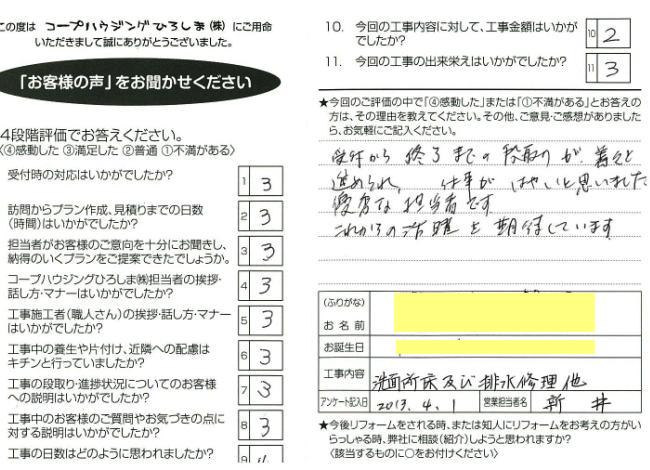 この度は コープハウジングひろしま(株) にご用命
いただきまして誠にありがとうございました。
「お客様の声」をお聞かせください
4段階評価でお答えください。
〈④感動した ③満足した ②普通 ①不満がある〉
受付時の対応はいかがでしたか? 1 3
訪問からプラン作成、見積りまでの日数
(時間)はいかがでしたか? 2 3
担当者がお客様のご意向を十分にお聞きし、
納得のいくプランをご提案できたでしょうか。 3 3
コープハウジングひろしま㈱担当者の挨拶・
話し方・マナーはいかがでしたか? 4 3
工事施工者(職人さん)の挨拶・話し方・マナー
はいかがでしたか? 5 3
工事中の養生や片付け、近隣への配慮は
キチンと行っていましたか? 6 3
工事の段取り・進捗状況についてのお客様
への説明はいかがでしたか? 7 3
工事中のお客様のご質問やお気づきの点に
対する説明はいかがでしたか? 8 3
工事の日数はどのように思われましたか? 9
10. 今回の工事内容に対して、工事金額はいかが
でしたか? 10 2
11. 今回の工事の出来栄えはいかがでしたか? 11 3
★今回のご評価の中で「④感動した」または「①不満がある」とお答えの
方は、その理由を教えてください。その他、ご意見・ご感想がありました
ら、お気軽にご記入ください。
受付から 終了までの 段取りが 着々と
進められ、 仕事が はやいと思いました
優秀な 担当者です
これからの活躍を 期待しています
(ふりがな)
お名前
お誕生日
工事内容 洗面所床及び排水修理他
アンケート記入日 2013. 4. 1 営業担当者名 新井
★今後リフォームをされる時、または知人にリフォームをお考えの方がい
らっしゃる時、弊社に相談(紹介)しようと思われますか?
〈該当するものに○をお付けください〉